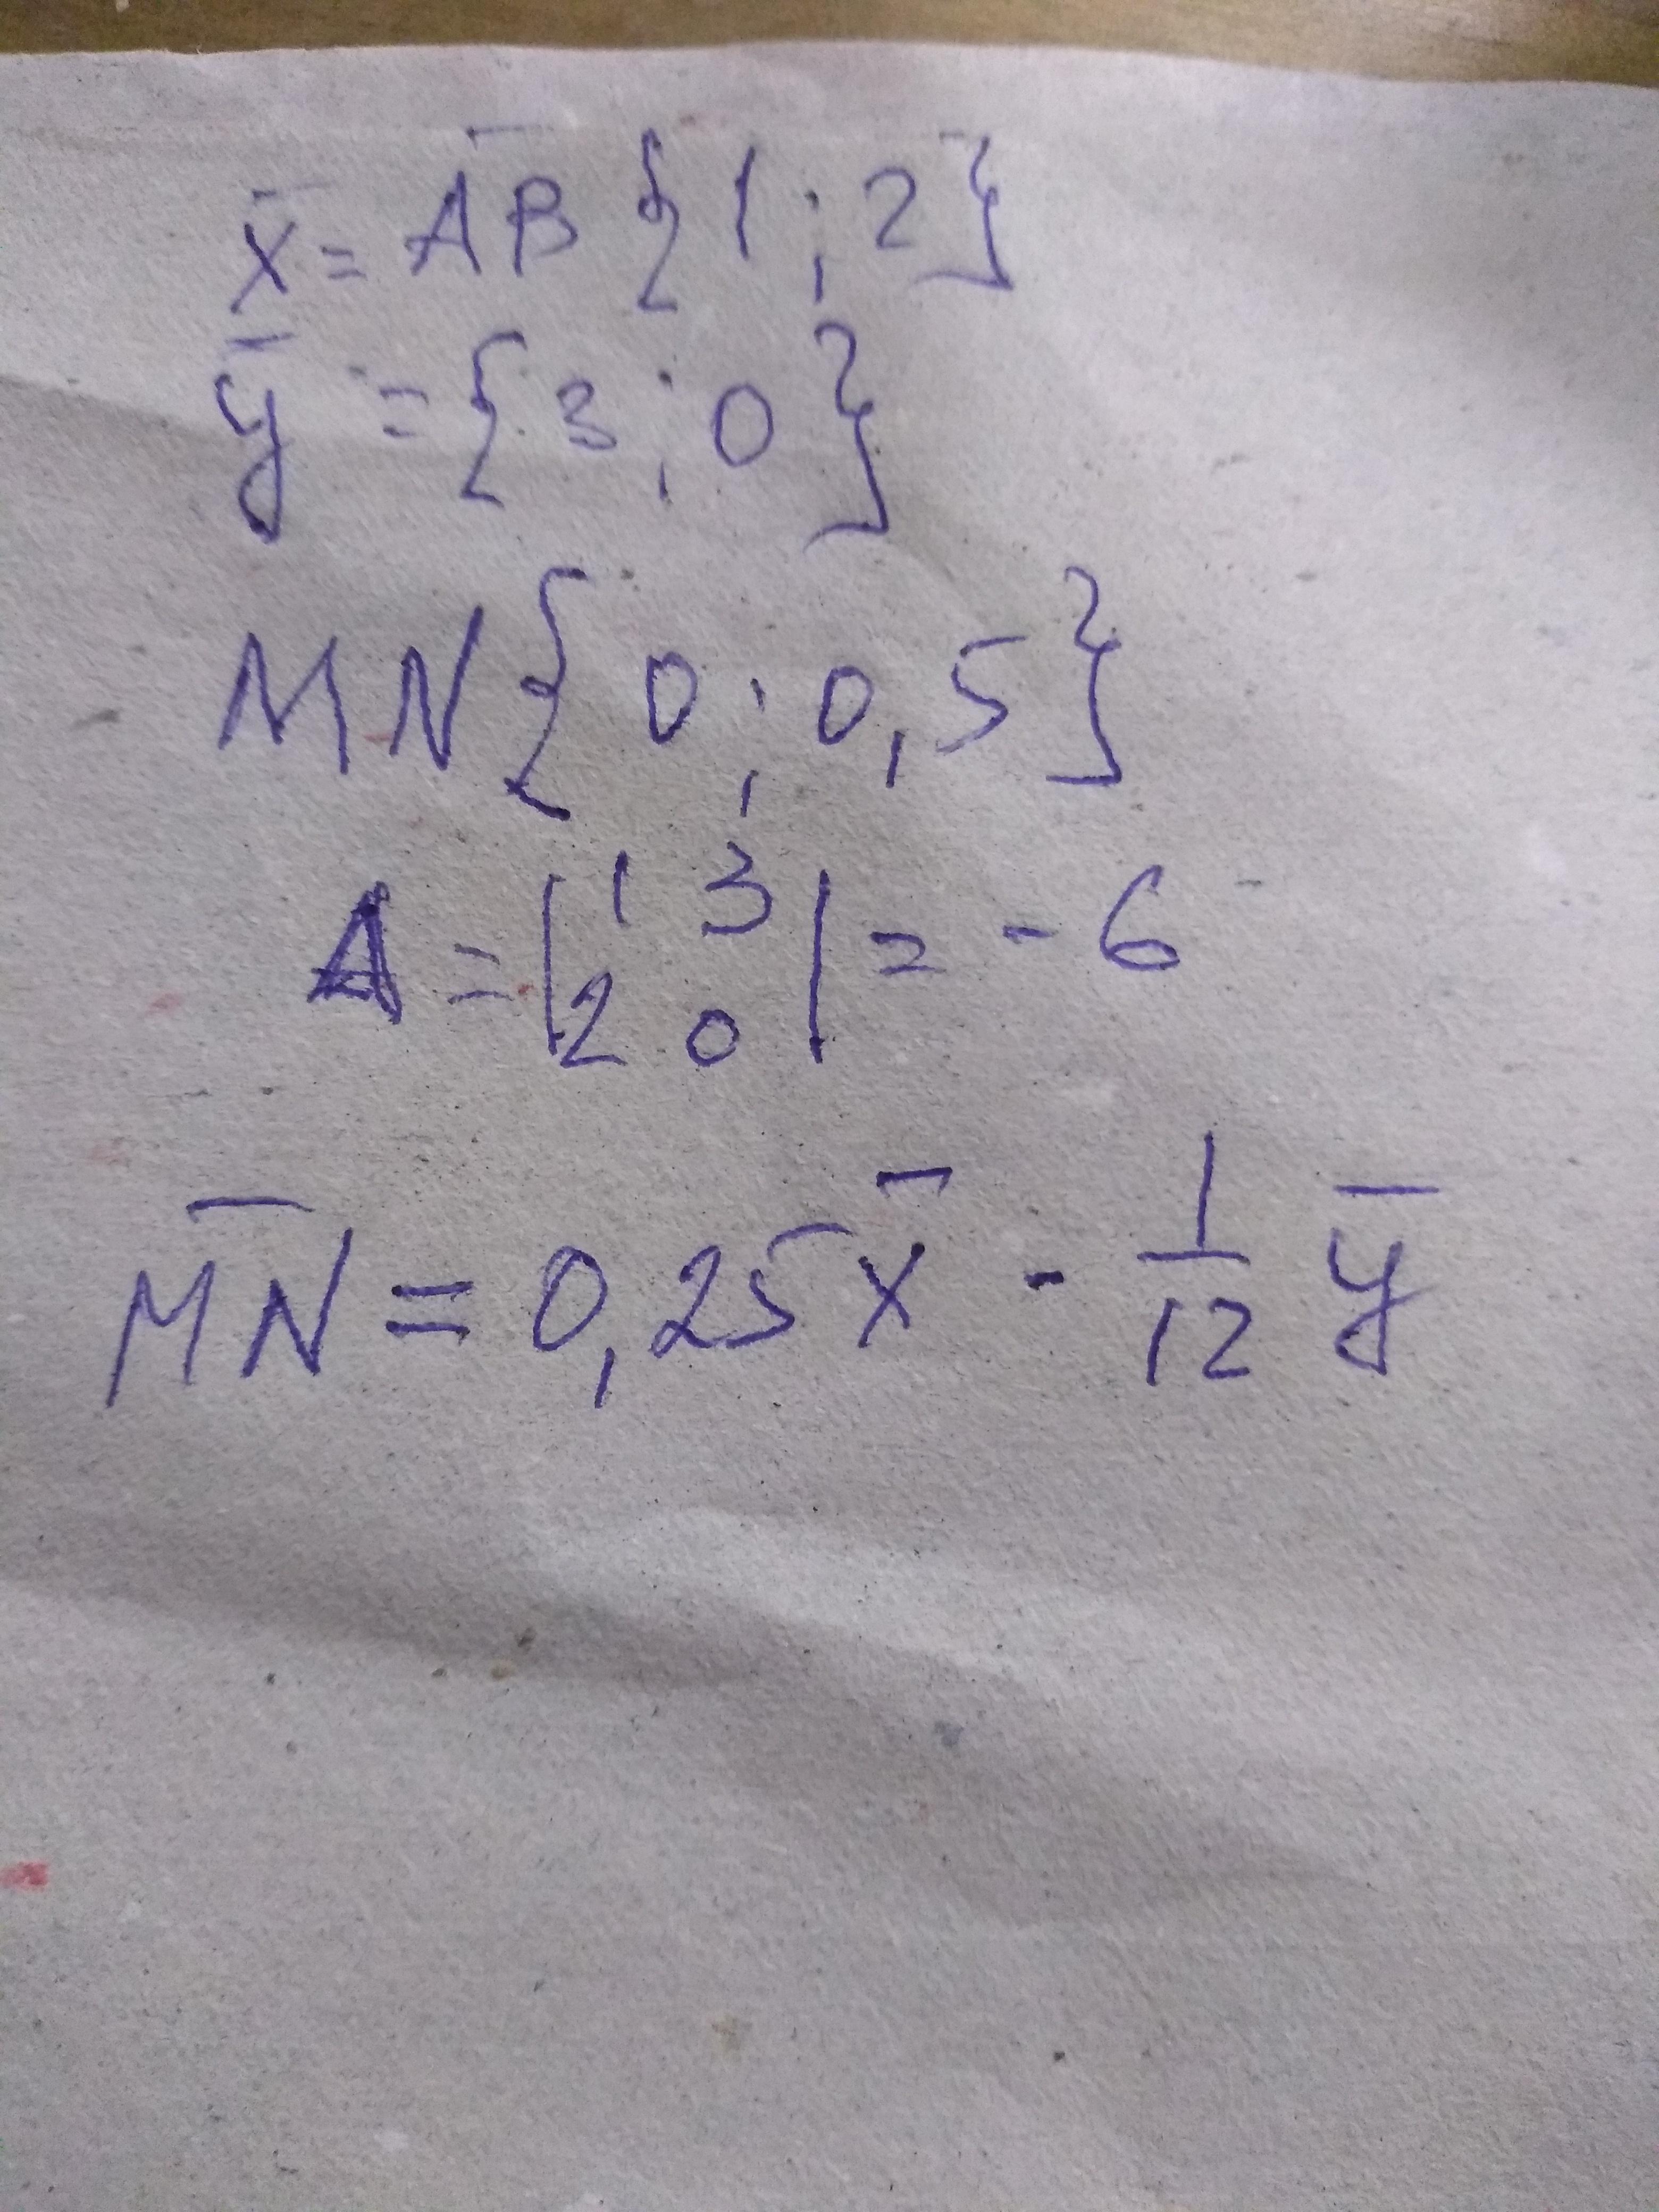 x̄ = A̅B̅ {1 ; 2}
ȳ = {3 ; 0}
MN {0 ; 0,5}
A = |1 3
2 0| = - 6
M̅N̅ = 0,25 x̄ - 1/12 ȳ